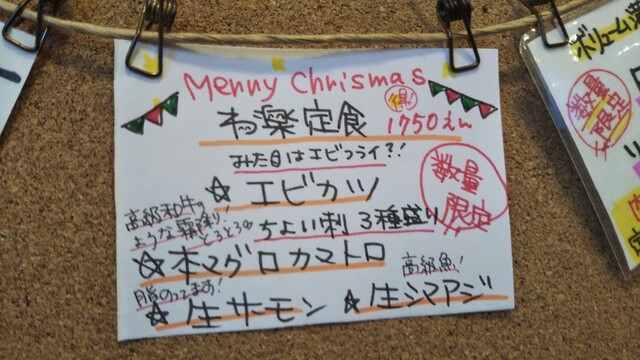 Merry Chrismas
わ楽定食 得 1750えん
みた目はエビフライ?!
☆エビカツ
数量限定
ちょい刺 3種盛り
高級和牛のような霜降り!とろとろ
☆本マグロカマトロ
高級魚!
脂のってます!
☆生サーモン ☆生シマアジ
ボリューム
数量限定